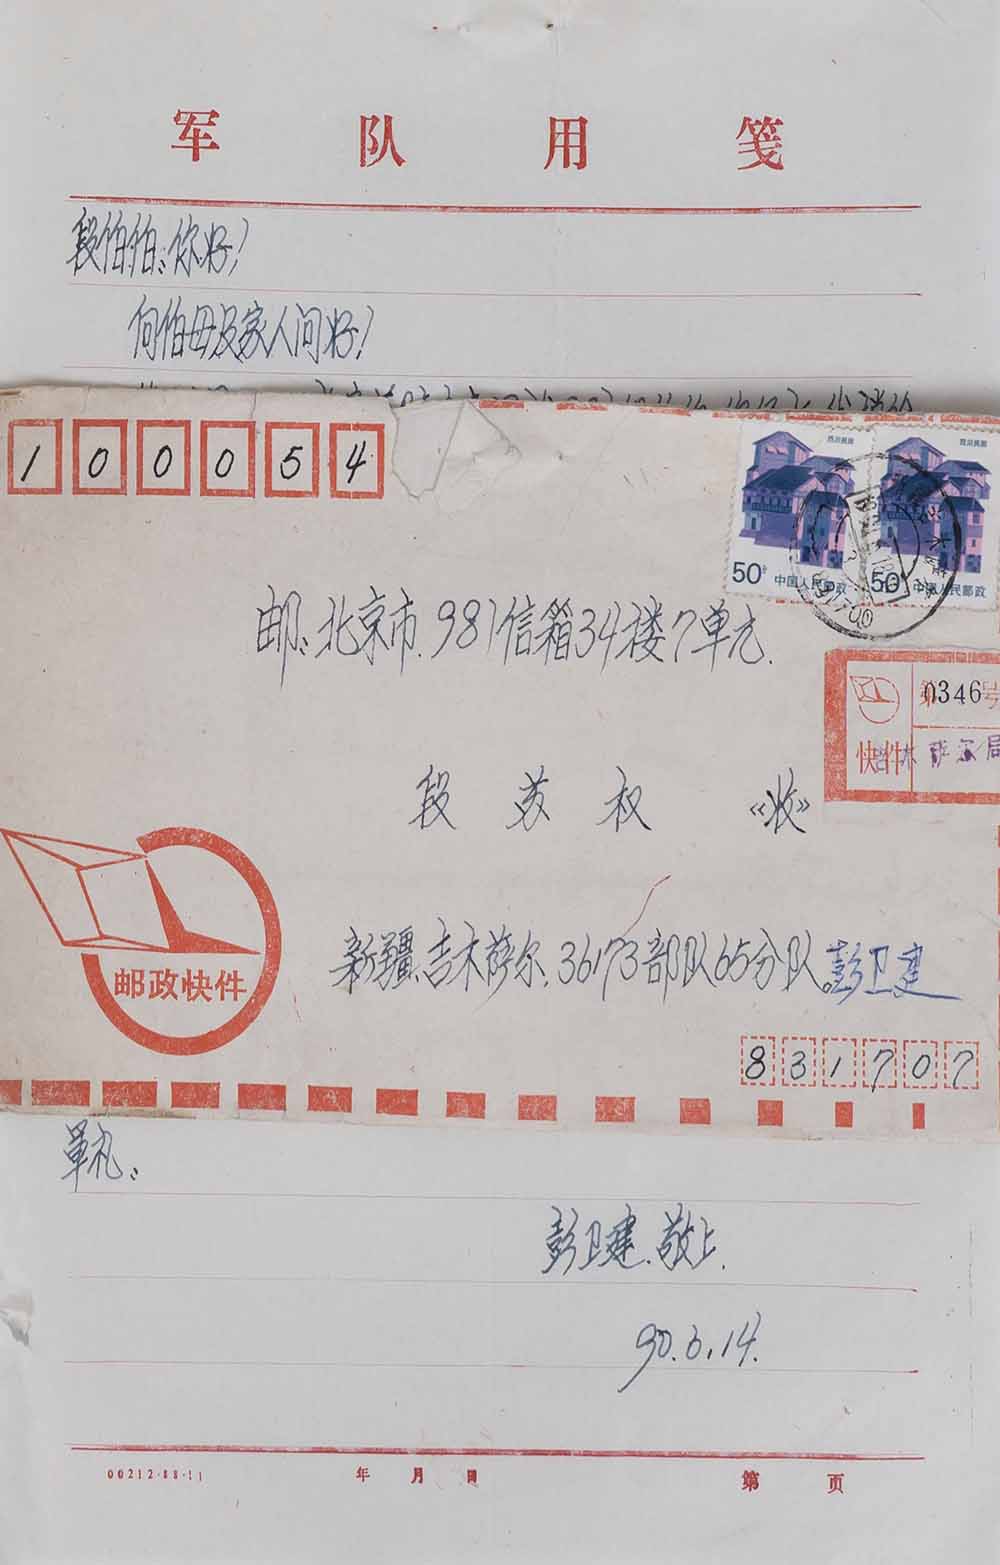 军队用笺
段伯伯:你好!
向伯母及家人问好!
100054
四川民居
四川民居
50分 中国人民邮政
50分 中国人民邮政
邮:北京市.981信箱34楼7单元.
第0346号
快件
木萨尔局
段苏权《收》
邮政快件
新疆.吉木萨尔.36173部队65分队.彭卫建
831707
军礼:
彭卫建.敬上.
90.6.14.
00212·88·11 年 月 日 第 页